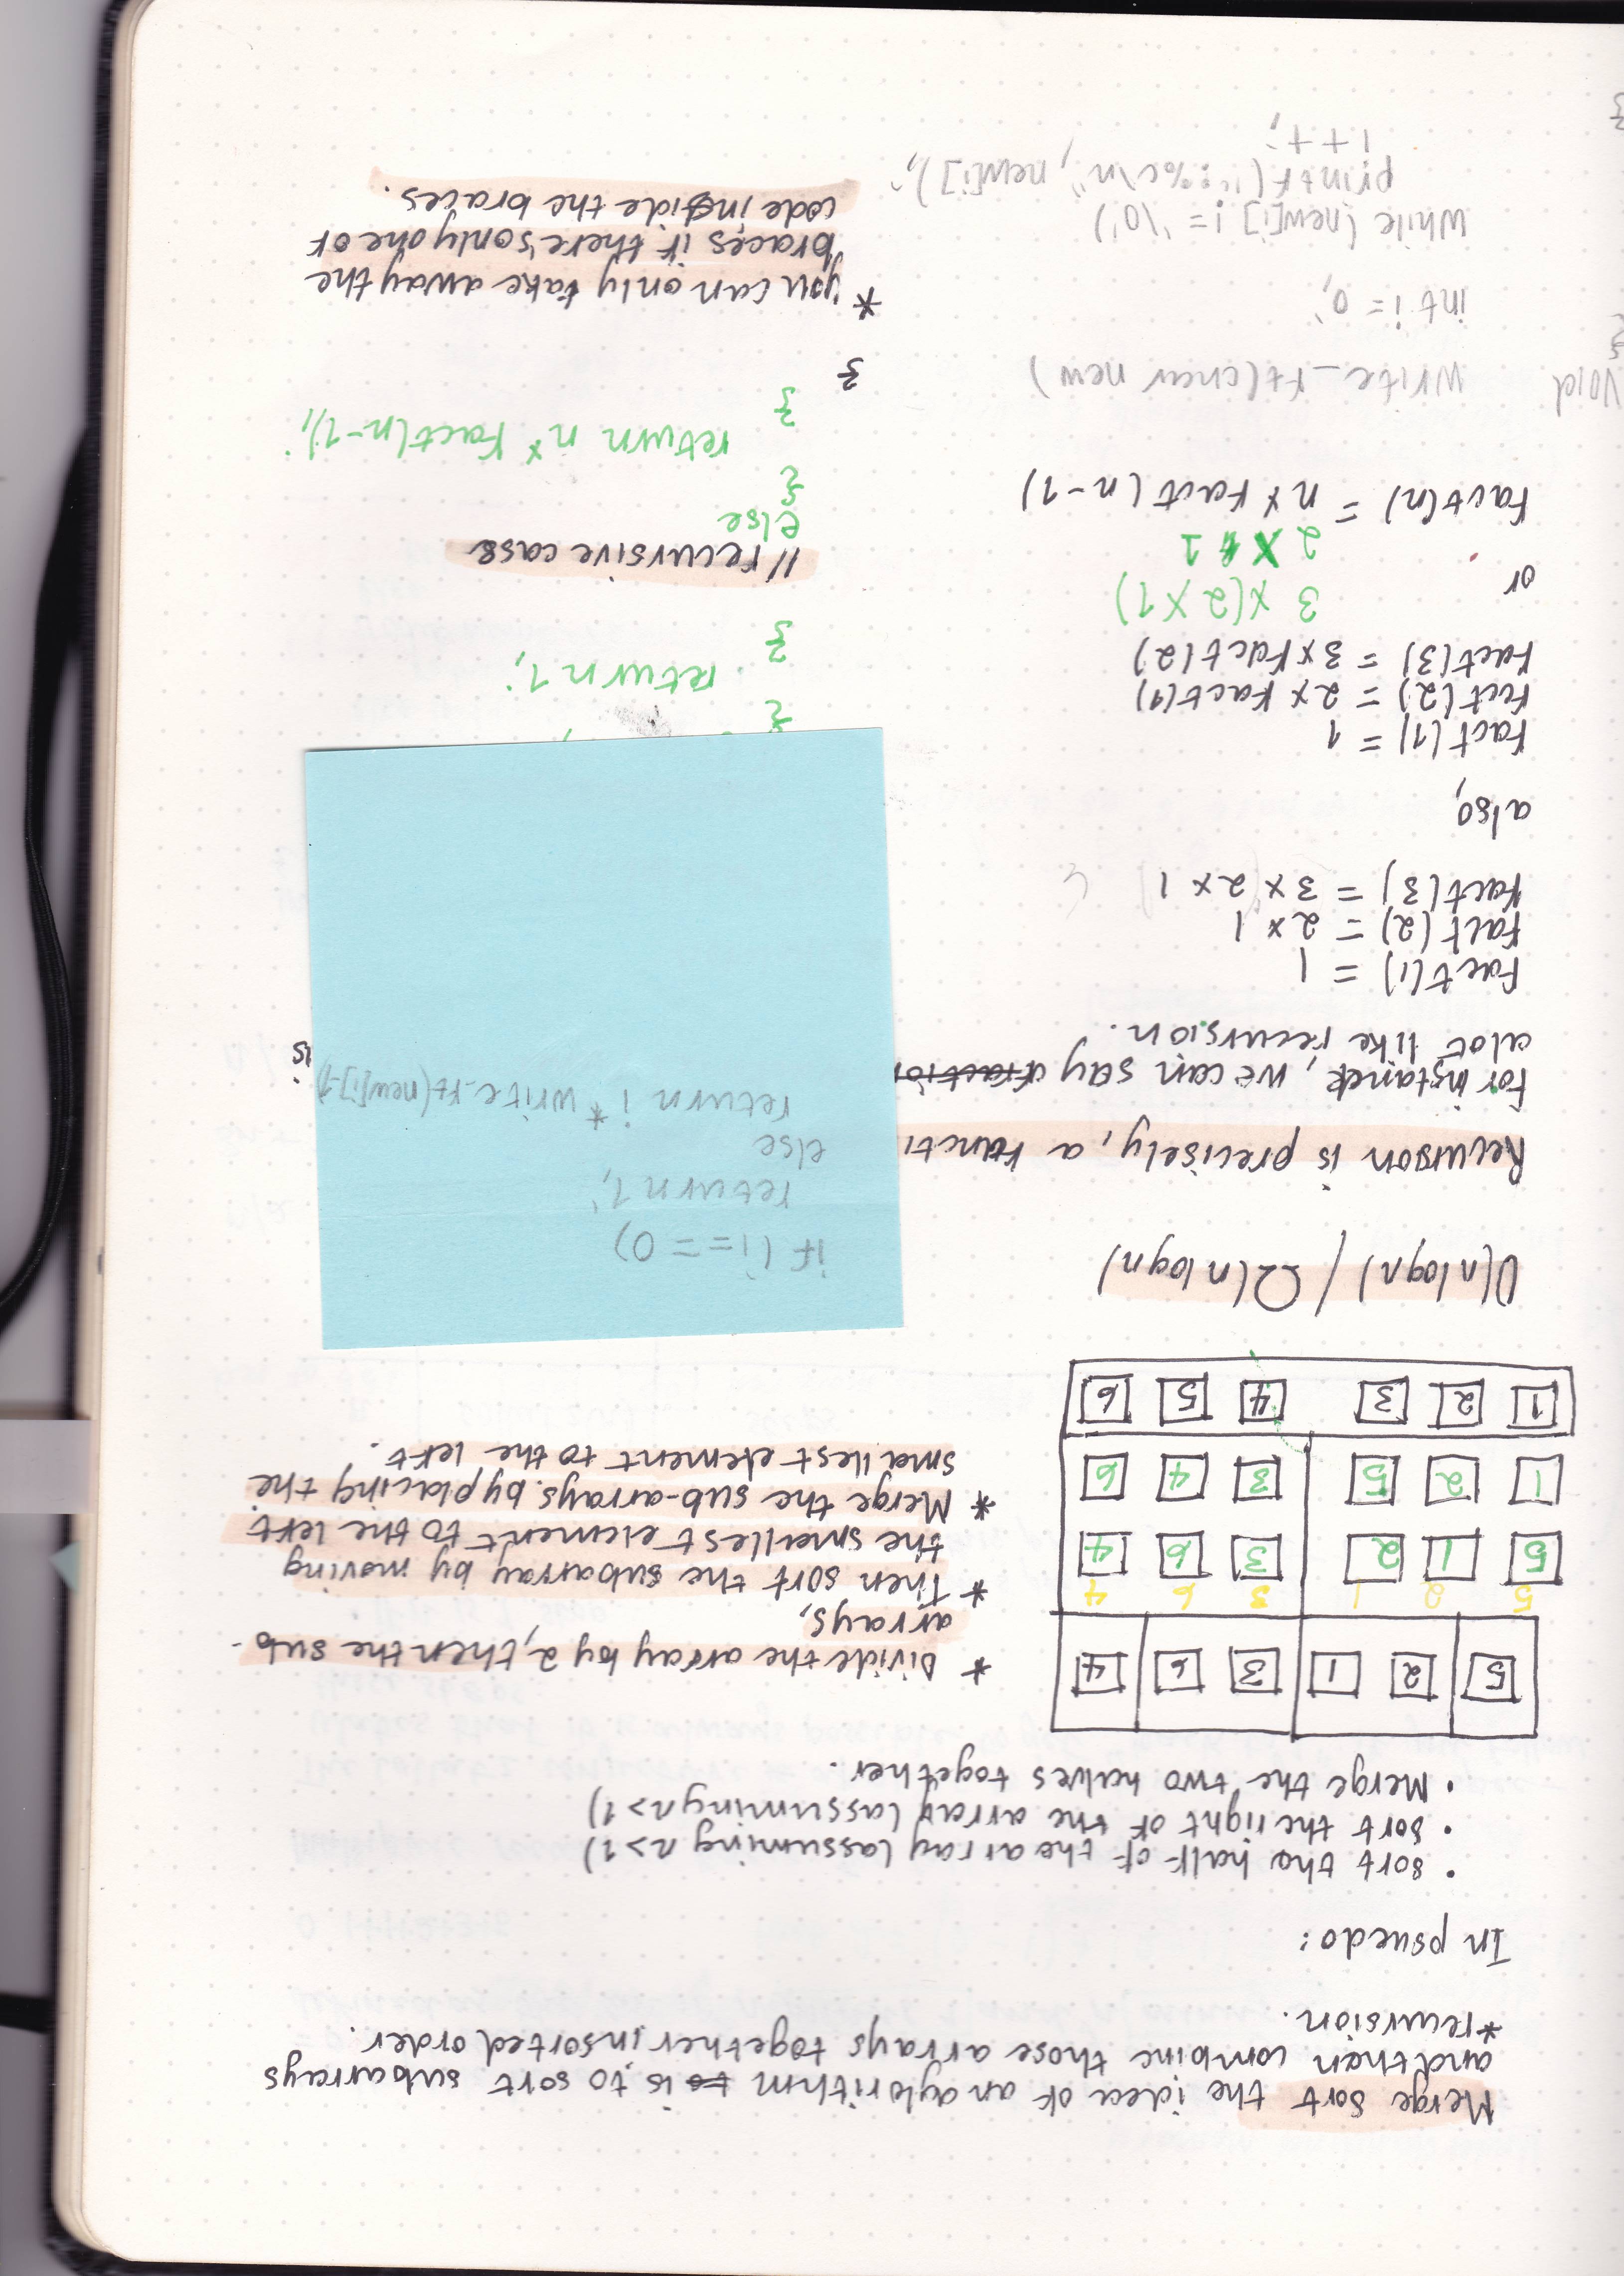 Merge Sort the idea of an aglorithm to is to sort subarrays
and then combine those arrays together in sorted order.
*recursion.
In psuedo:
• sort the half of the array (assuming n>1)
• sort the right of the array (assuming n>1)
• Merge the two halves together.
5 2 1 3 6 4
5 2 1 3 6 4
5 1 2 3 6 4
1 2 5 3 4 6
1 2 3 4 5 6
* Divide the array by 2, then the sub-
arrays,
* Then sort the subarray by moving
the smallest element to the left
* Merge the sub-arrays. by placing the
smallest element to the left.
O(n log n) / Ω(n log n)
Recursion is precisely, a
For instance, we can say
is
alot like recursion.
Fact(1) = 1
Fact(2) = 2 x 1
Fact(3) = 3 x 2 x 1
also,
Fact(1) = 1
Fact(2) = 2 x Fact(1)
Fact(3) = 3 x Fact(2)
3 x (2 x 1)
or
2 x 1
Fact(n) = n x Fact(n-1)
void write_ft(char new)
{
int i = 0;
while (new[i] != '\0')
printf(": %c\n", new[i]);
i++;
}
if (i == 0)
return 1;
else
return i * write_ft(new[i]-1)
{
return 1;
}
// recursive case
else
{
return n * Fact(n-1);
}
}
* you can only take away the
braces if there's only one of
code inside the braces.